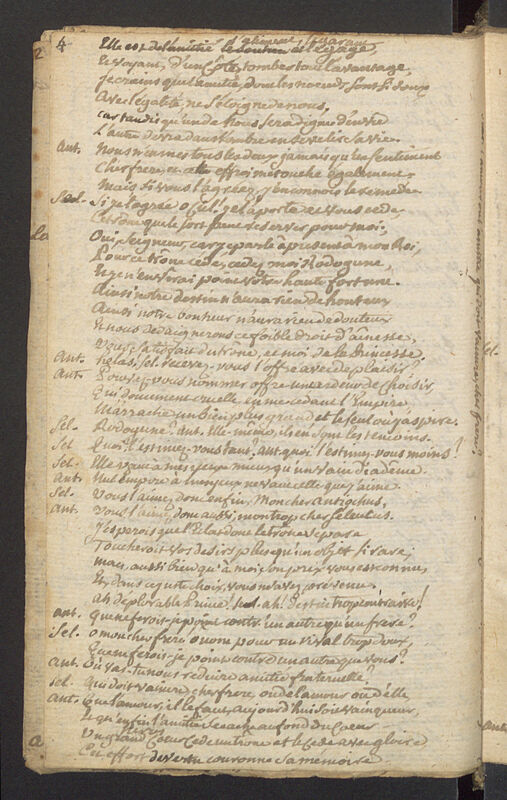 4
Elle est de l'amitié le soutien et le gage,
Et voyant d'un côté tomber tout l'avantage,
Je crains que l'amitié, dont les noeuds sont si doux
Avec l'égalité, ne s'éloigne de nous,
car tandis qu'un de nous sera digne d'envie
L'autre devra dans l'ombre ensevelir sa vie.
Ant. Nous n'eumes tous les deux jamais qu'un sentiment
Cher frere, cet effroi me touche également,
Mais si vous l'agréez, j'en connois le remede
Sel. Si je l'agrée o ciel! je l'aporte, et vous cede
Ce trône que le sort peut reserver pour moi.
Oui, Seigneur, car je parle à présent à mon Roi,
Pour ce trône cedé, cedez moi Rodogune,
Et je n'envierai point votre haute fortune.
Ainsi notre destin n'aura rien de honteux
Ainsi notre bonheur n'aura rien de douteux
Et nous dedaignerons ce foible droit d'aînesse,
Vous, satisfait du trône, et moi de la Princesse.
Ant. helas, Sel. recevez-vous l'offre avec deplaisir?
Ant. Pouvez-vous nommer offre une ardeur de choisir,
Qui, doucement cruelle en me cedant l'Empire,
M'arrache un bien plus grand et le seul où j'aspire.
Sel. Rodogune? Ant. Elle-même, ils en sont les temoins.
Sel. Quoi! l'estimez-vous tant? Ant. quoi! l'estimez-vous moins!
Sel. Elle vaut à mes yeux mieux qu'un vain diadême
Ant. Nul empire à mes yeux ne vaut celle que j'aime.
Sel. Vous l'aimez donc enfin, Mon cher Antiochus,
Ant. Vous l'aimez donc aussi, mon trop cher Seleucus.
J'esperois que l'Eclat dont le trône se pare
Toucheroit vos desirs plus qu'un objet si rare;
mais, aussi bien qu'à moi, son prix vous est connu,
Et, dans ce juste choix, vous m'avez prevenu.
ah deplorable Prince! Sel. ah! destin trop contraire!
ant. Que ne ferois-je point contre un autre qu'un frere?
Sel. o mon cher frere, o nom pour un rival trop doux,
Que ne ferois-je point contre un autre que vous?
Ant. Où vas-tu nous reduire amitié fraternelle?
Sel. Qui doit vaincre, cher frere, ou de l'amour ou d'elle
Ant. L'amour, il le faut, aujourd'hui soit vainqueur,
Et qu'enfin l'amitié au fond du Coeur
Un grand Coeur cede un trône et le cede avec gloire
Cet effort de vertu couronne sa memoire